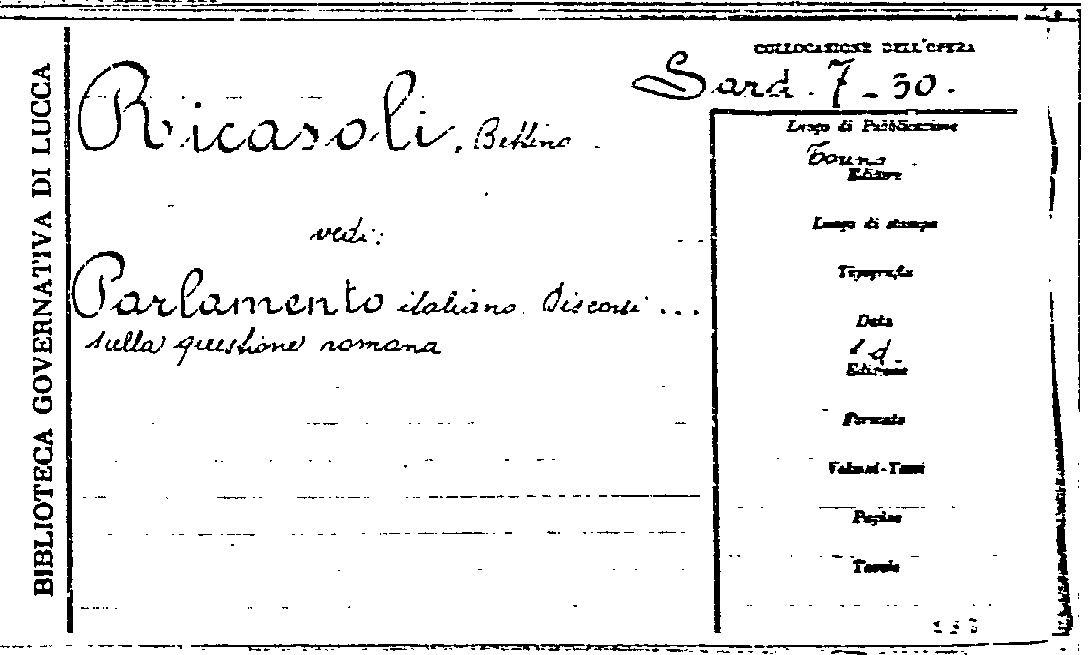 BIBLIOTECA GOVERNATIVA DI LUCCA
COLLOCAZIONE DELL'OPERA
Sard. 7-30.
Ricasoli, Bettino
vedi:
Parlamento italiano. Discorsi ...
sulla questione romana
Luogo di Pubblicazione
Torino
Editore
Luogo di stampa
Tipografia
Data
s.d.
Edizione
Formato
Volumi-Tomi
Pagine
Tavole